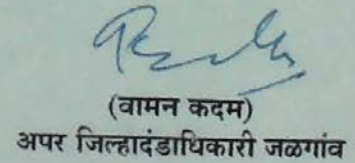 (वामन कदम)
अपर जिल्हादंडाधिकारी जळगांव